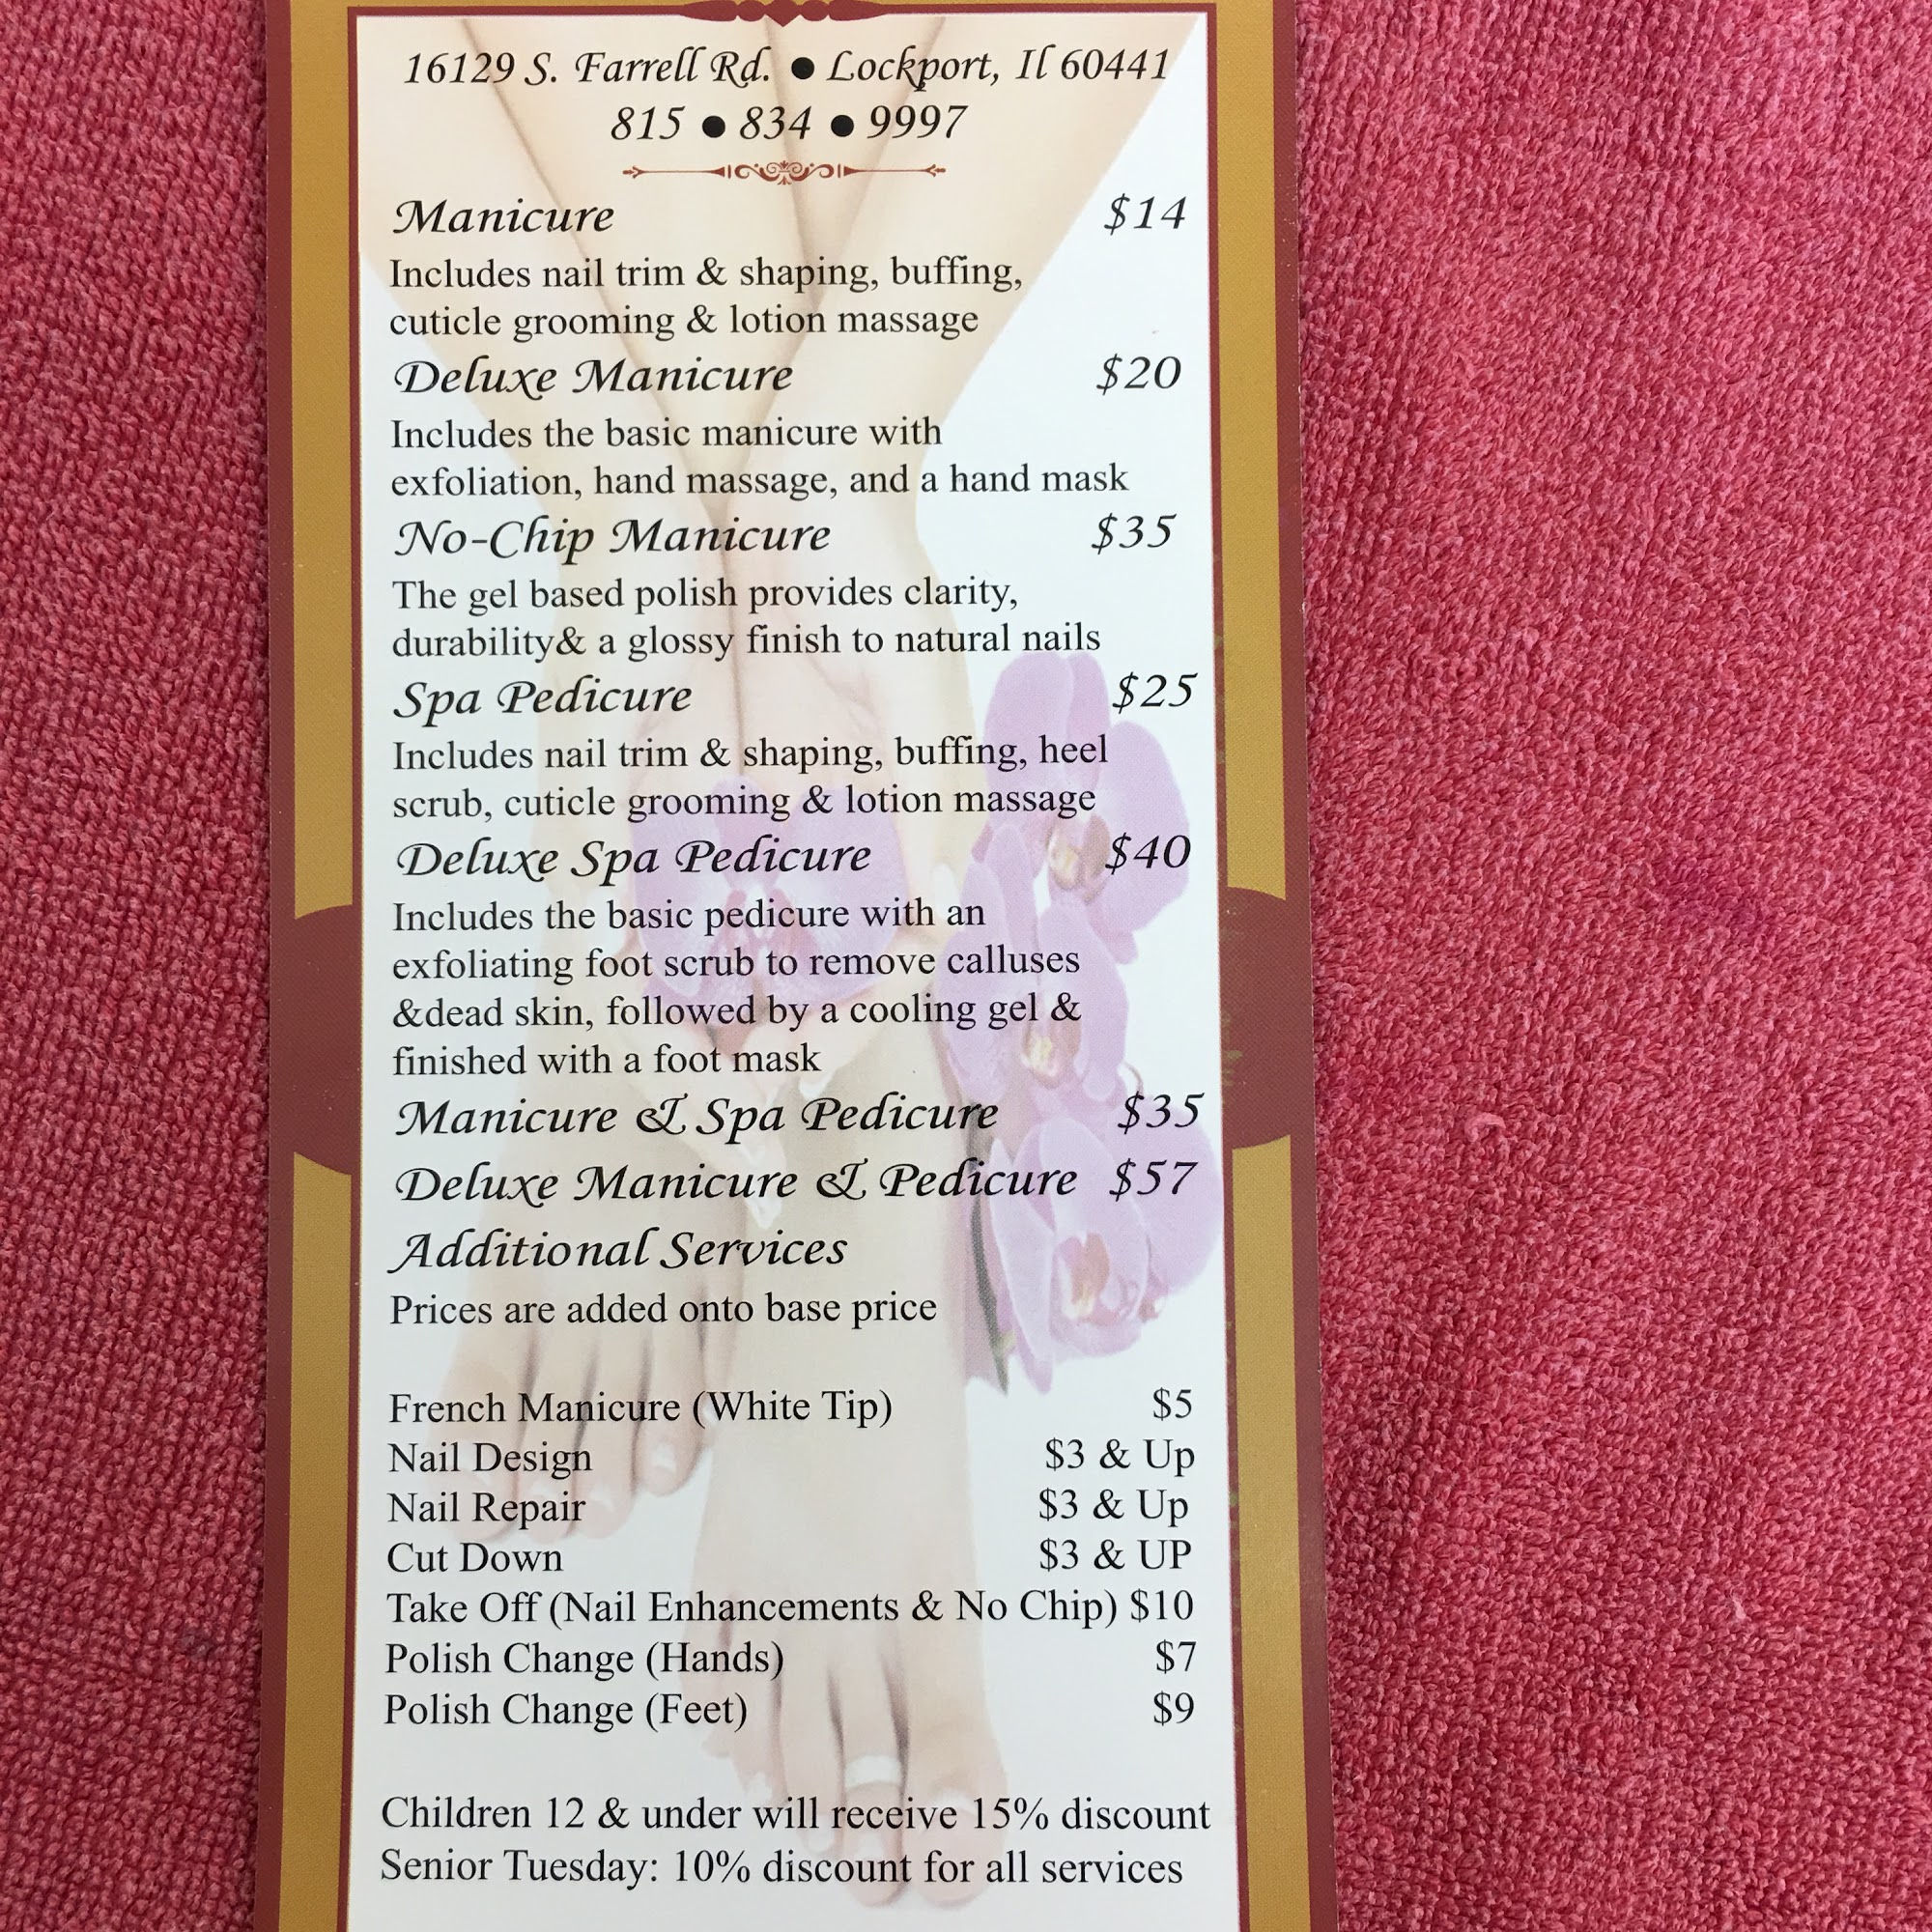 16129 S. Farrell Rd. ● Lockport, Il 60441
815 ● 834 ● 9997
Manicure $14
Includes nail trim & shaping, buffing,
cuticle grooming & lotion massage
Deluxe Manicure $20
Includes the basic manicure with
exfoliation, hand massage, and a hand mask
No-Chip Manicure $35
The gel based polish provides clarity,
durability& a glossy finish to natural nails
Spa Pedicure $25
Includes nail trim & shaping, buffing, heel
scrub, cuticle grooming & lotion massage
Deluxe Spa Pedicure $40
Includes the basic pedicure with an
exfoliating foot scrub to remove calluses
&dead skin, followed by a cooling gel &
finished with a foot mask
Manicure & Spa Pedicure $35
Deluxe Manicure & Pedicure $57
Additional Services
Prices are added onto base price
French Manicure (White Tip) $5
Nail Design $3 & Up
Nail Repair $3 & Up
Cut Down $3 & UP
Take Off (Nail Enhancements & No Chip) $10
Polish Change (Hands) $7
Polish Change (Feet) $9
Children 12 & under will receive 15% discount
Senior Tuesday: 10% discount for all services